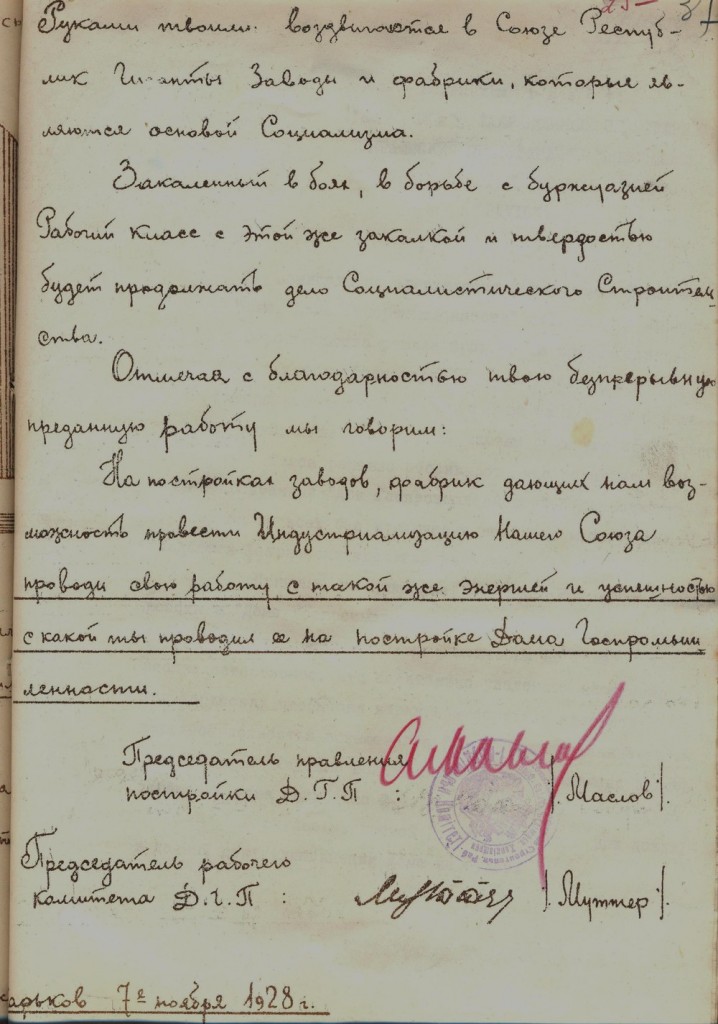 25 31
Руками твоими воздвигаются в Союзе Респуб-
лик Гиганты Заводы и фабрики, которые яв-
ляются основой Социализма.
Закаленный в боях, в борьбе с буржуазией
Рабочий Класс с этой же закалкой и твердостью
будет продолжать дело Социалистического Строитель
ства.
Отмечая с благодарностью твою безпрерывную
преданную работу мы говорим:
На постройках заводов, фабрик дающих нам воз-
можность провести Индустриализацию Нашего Союза
проводи свою работу с такой же энергией и успешностью
с какой ты проводил ее на постройке Дома Госпромыш-
ленности.
Председатель правления
постройки Д.Г.П : /Маслов/.
Председатель рабочего
комитета Д.Г.П : /Муттер/.
арьков 7го ноября 1928 г.